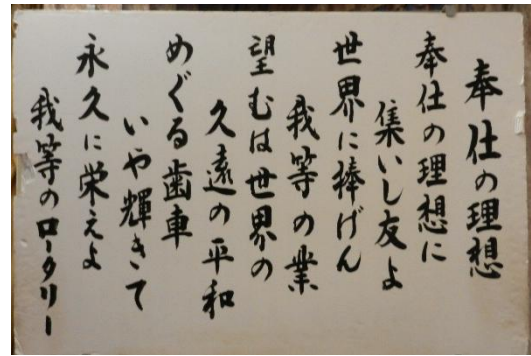 奉仕の理想
奉仕の理想に
集いし友よ
世界に捧げん
我等の業
望むは世界の
久遠の平和
めぐる歯車
いや輝きて
永久に栄えよ
我等のロータリー